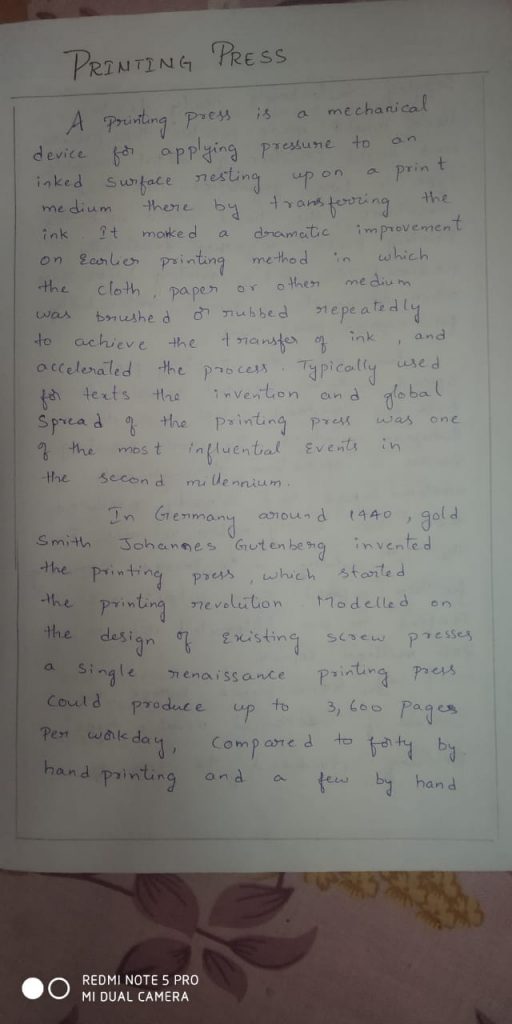 PRINTING PRESS
A printing press is a mechanical
device for applying pressure to an
inked surface resting up on a print
medium there by transferring the
ink. It marked a dramatic improvement
on Earlier printing method in which
the cloth, paper or other medium
was brushed or rubbed repeatedly
to achieve the transfer of ink, and
accelerated the process. Typically used
for texts the invention and global
Spread of the printing press was one
of the most influential Events in
the second millennium.
In Germany around 1440, gold
Smith Johannes Gutenberg invented
the printing press, which started
the printing revolution. Modelled on
the design of Existing screw presses
a single renaissance printing press
could produce up to 3,600 pages
Per workday, compared to forty by
hand printing and a few by hand
REDMI NOTE 5 PRO
MI DUAL CAMERA